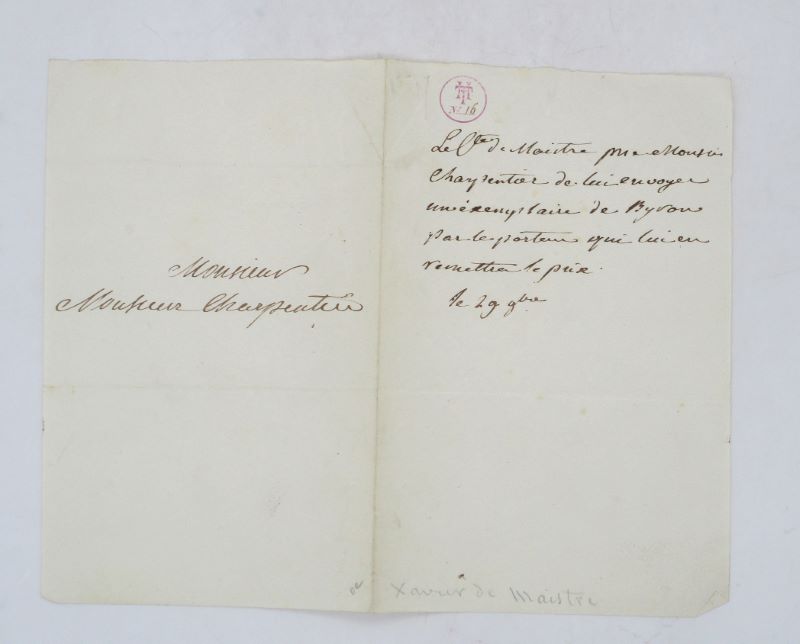 Monsieur
Monsieur Charpentier
TM
N. 16
Le Cte de Maistre prie Monsieur
Charpentier de lui envoyer
un éxemplaire de Byron
par le porteur qui lui en
remettra le prix.
le 29 9bre
Xavier de Maistre